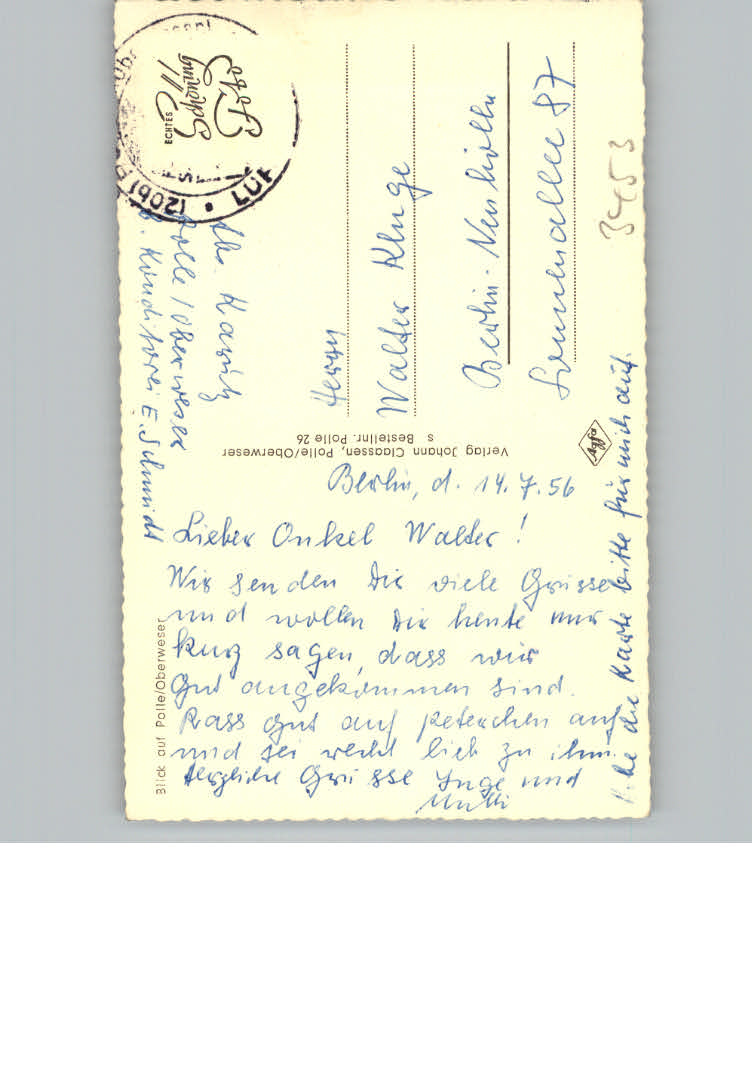 Berlin, d. 14.7.56
Lieber Onkel Walter!
Wir senden Dir viele Grüsse
und wollen Dir heute nur
kurz sagen, dass wir
gut angekommen sind.
Pass gut auf Peterchen auf
und sei recht lieb zu ihm.
Herzliche Grüsse Inge und
Mutti
die Karte bitte für mich auf.
Herrn
Walter Kluge
Berlin-Neukölln
Sonnenallee 87
3453
Abs. 
Polle/Oberweser
b. Konditorei E. Schmidt
ECHTES
Schöning
Foto
(20b)
LÜ
Verlag Johann Claassen, Polle/Oberweser
s Bestellnr. Polle 26
Agfa
Blick auf Polle/Oberweser